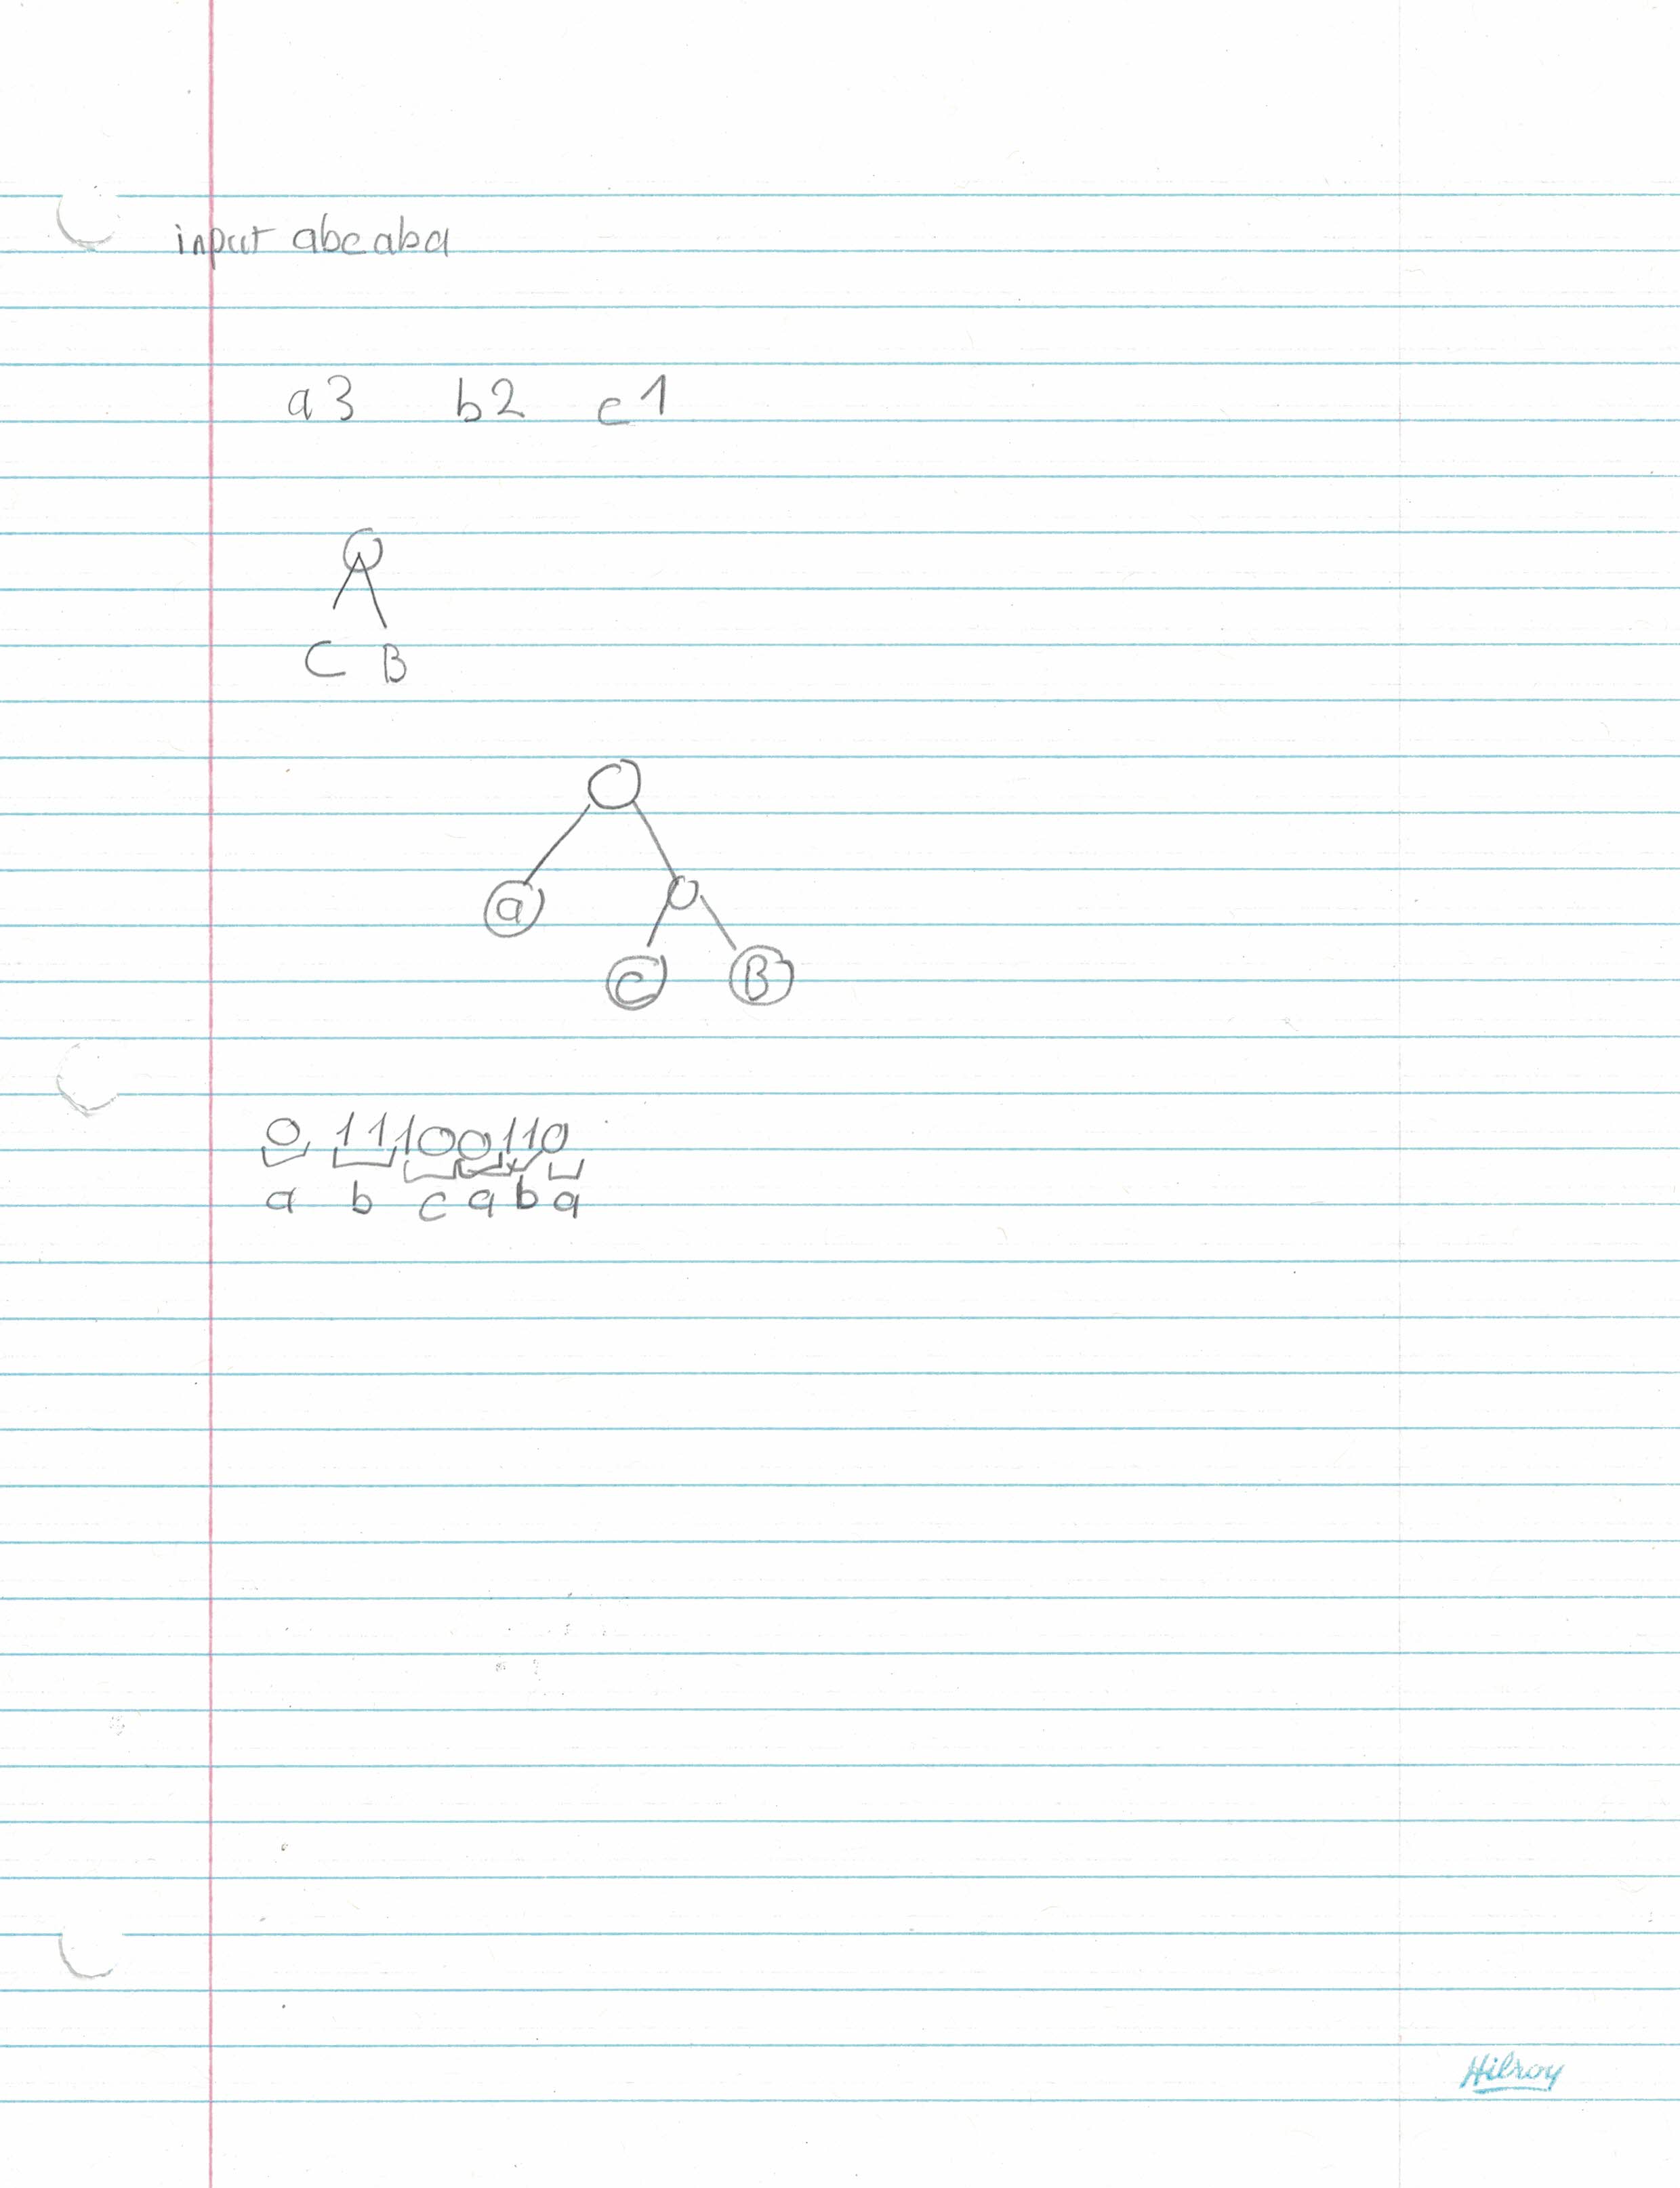 input abcaba
a3 b2 c1
C B
a
C B
0 11100110
a b c a b a
Hilroy